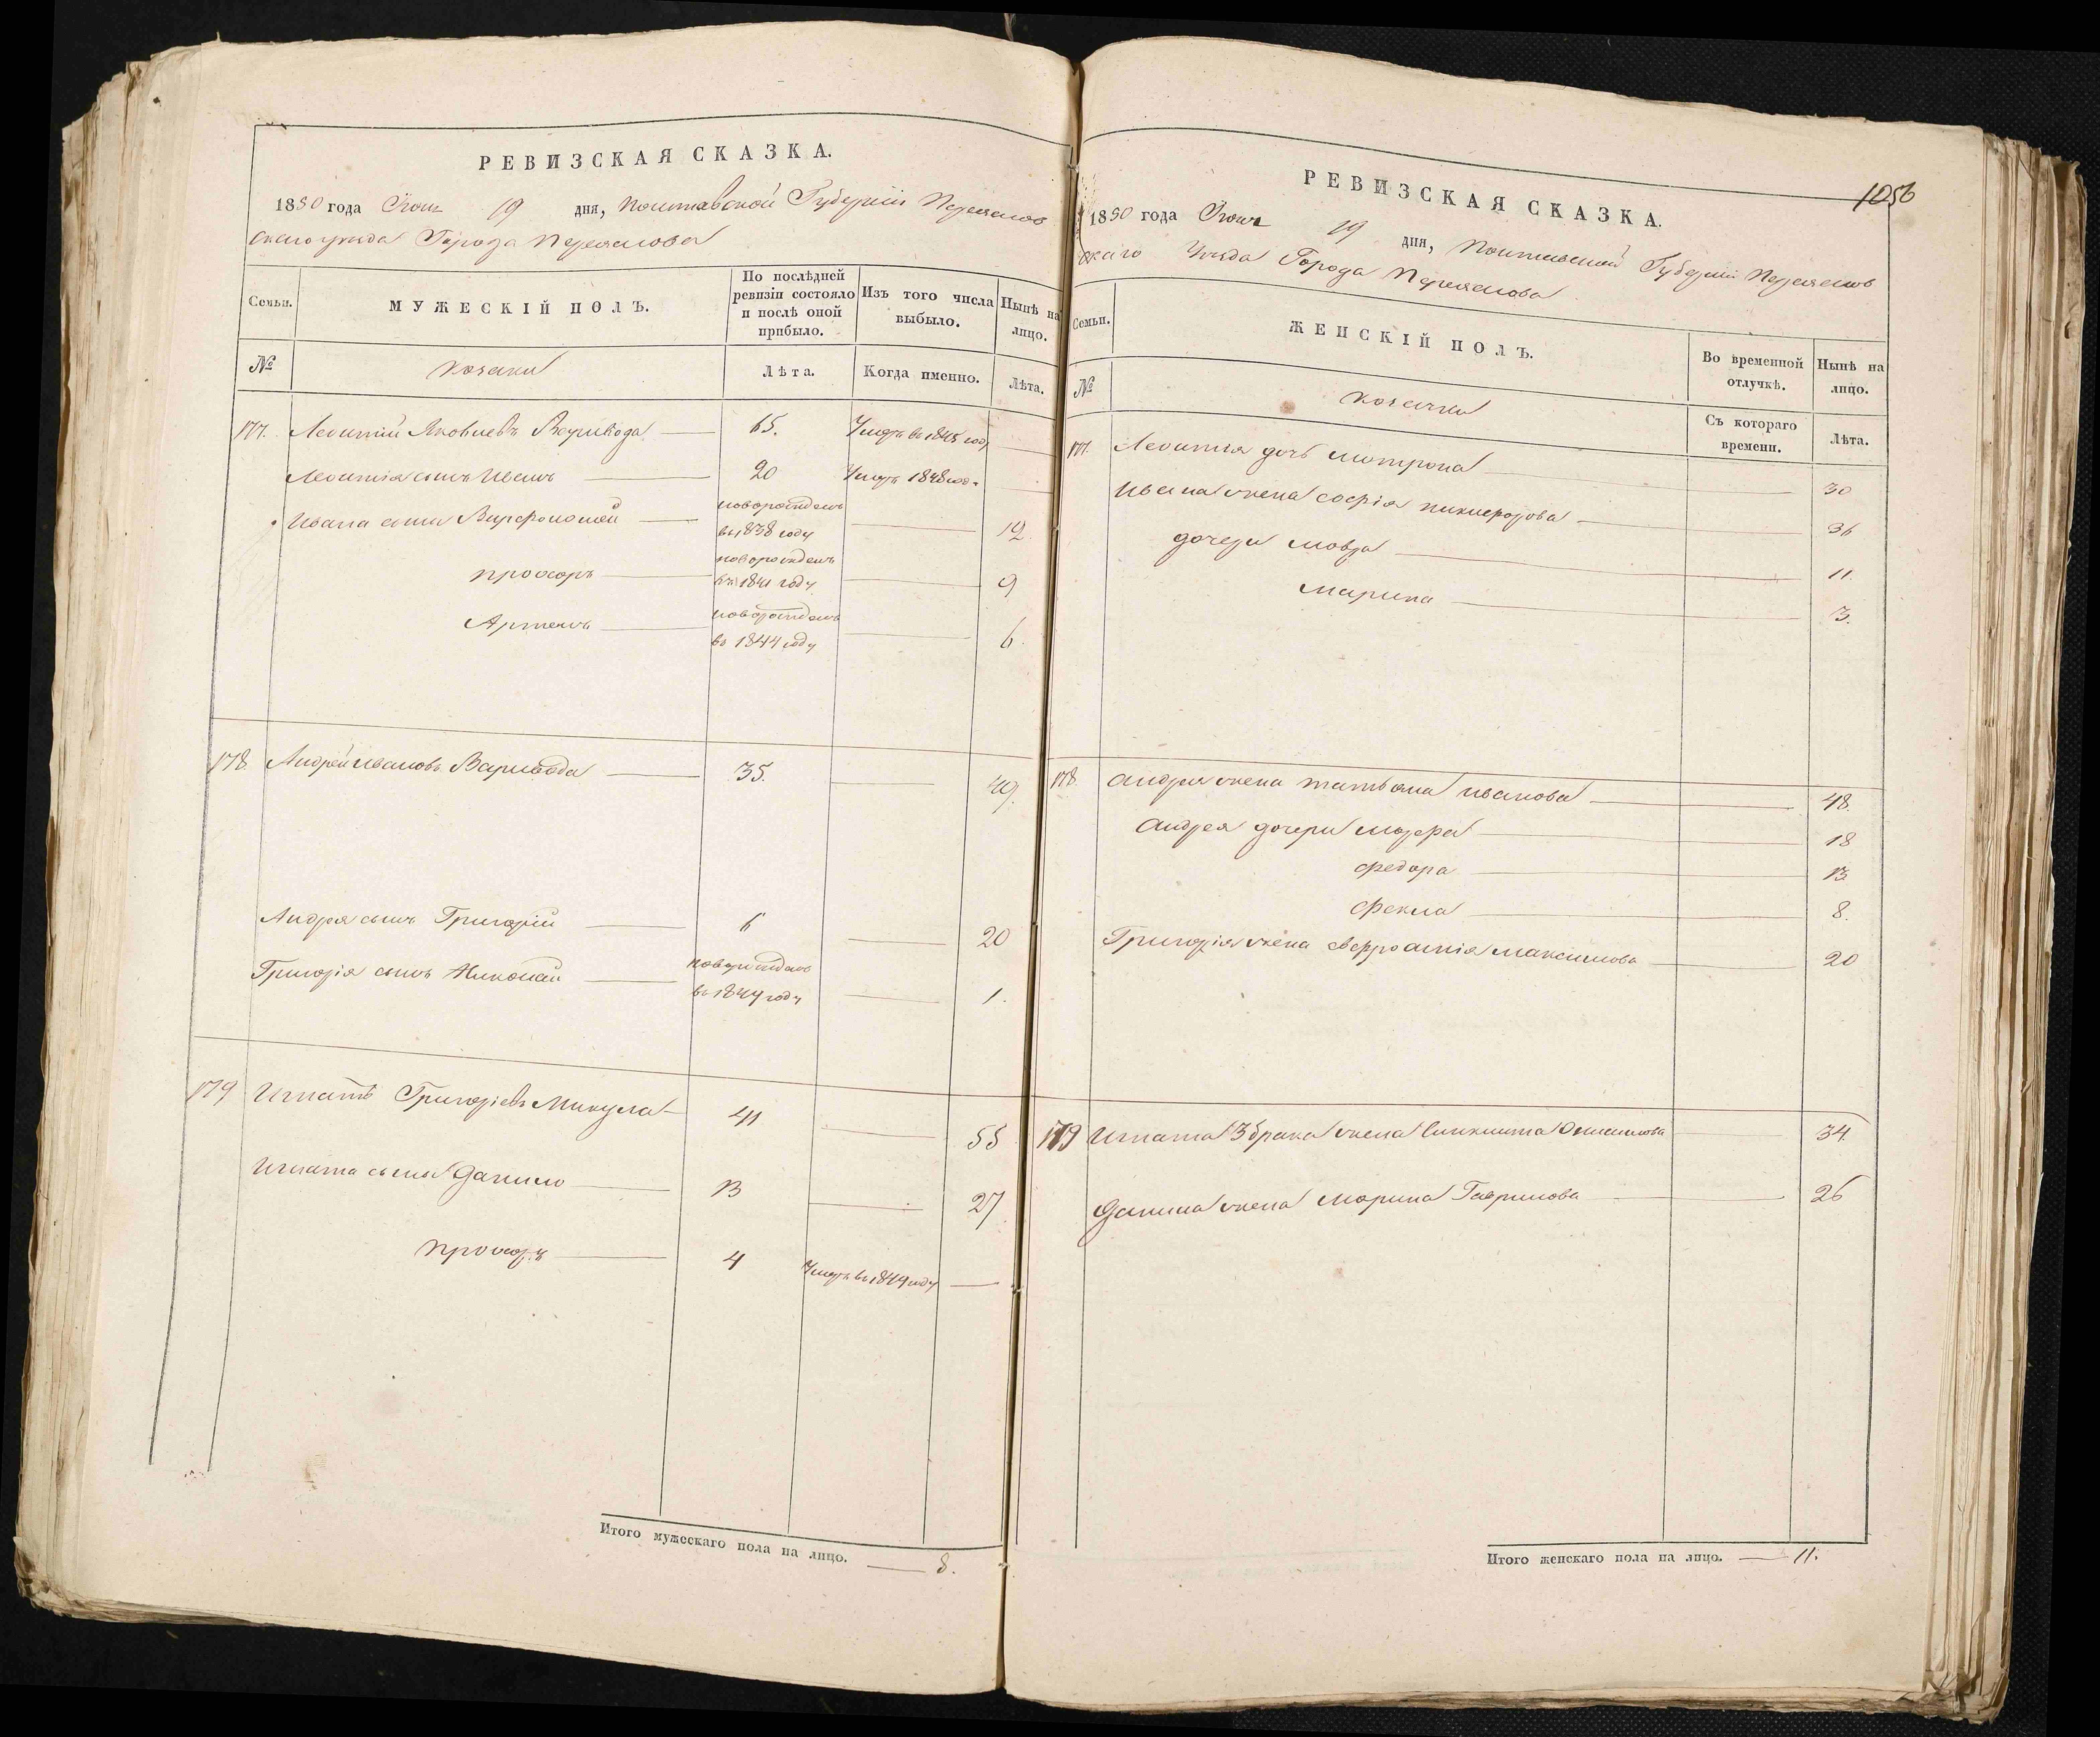 РЕВИЗСКАЯ СКАЗКА.
1850 года Июня 19 дня, Полтавской Губернии Переяслов
скаго уѣзда Города Переяслова
Семьи.
МУЖЕСКІЙ ПОЛЪ.
По послѣдней ревизіи состояло и послѣ оной прибыло.
Изъ того числа выбыло.
Нынѣ на лицо.
№
Козаки
Лѣта.
Когда именно.
Лѣта.
177. Леонтій Яковлевъ Варивода 65. Умеръ въ 1845 году
Леонтія сынъ Иванъ 20 Умеръ 1848 года
Ивана сыны Варфоломей новорожденъ въ 1838 году 12
Прохоръ новорожденъ въ 1841 году 9
Артемъ новорожденъ въ 1844 году 6.
178. Андрей Ивановъ Варивода 35. 49.
Андрея сынъ Григорій 6 20
Григорія сынъ Николай новорожденъ въ 1849 году 1.
179 Игнатъ Григоріевъ Микула 41 55
Игната сыны Данило 13 27
Прохоръ 4 Умеръ въ 1849 году
Итого мужескаго пола на лицо. 8.
1056
РЕВИЗСКАЯ СКАЗКА.
1850 года Июня 19 дня, Полтавской Губерніи Переяслов
скаго Уѣзда Города Переяслова
Семьи.
ЖЕНСКІЙ ПОЛЪ.
Во временной отлучкѣ.
Нынѣ на лицо.
№
Козачки
Съ котораго времени.
Лѣта.
177. Леонтія дочь Мотрона 30
Ивана жена Софія Никифорова 36
дочери Мовра 11.
Марина 3.
178. Андрея жена Татьяна Иванова 48.
Андрея дочери Марфа 18
Федора 13
Фекла 8.
Григорія жена Евфросинія Максимова 20
179 Игната 3 брака жена 34.
Данила жена Марина Гаврилова 26
Итого женскаго пола на лицо. 11.